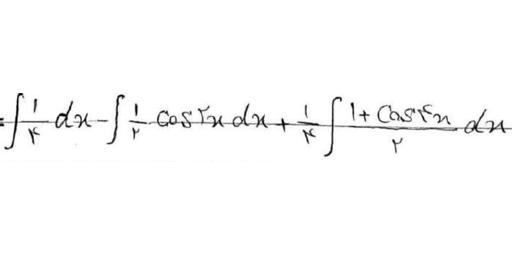 = ∫ ۱/۴ dx - ∫ ۱/۲ cos ۲x dx + ۱/۴ ∫ (۱ + cos ۴x)/۲ dx